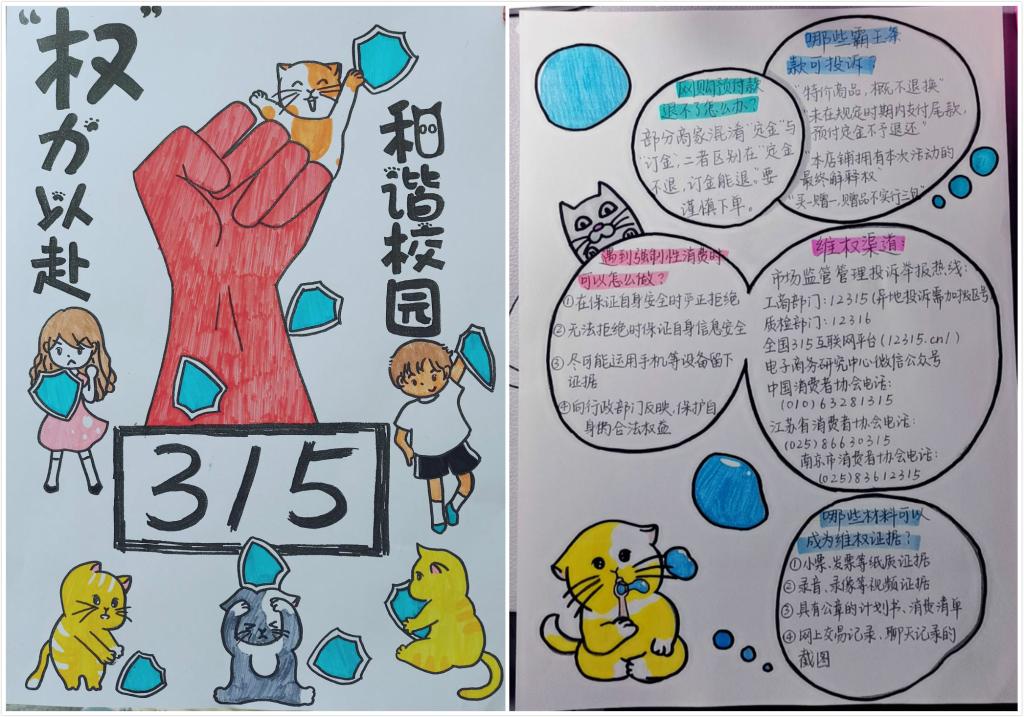 “权”力以赴
和谐校园
315
哪些霸王条
款可投诉？
“特价商品，概不退换”
“未在规定时期内支付尾款，
预付定金不予退还”
“本店铺拥有本次活动的
最终解释权”
“买一赠一，赠品不实行三包”
网购预付款
退不了怎么办？
部分商家混淆“定金”与
“订金”，二者区别在“定金
不退，订金能退。”要
谨慎下单。
遇到强制性消费时
可以怎么做？
①在保证自身安全时严正拒绝
②无法拒绝时保证自身信息安全
③尽可能运用手机等设备留下
证据
④向行政部门反映，保护自
身的合法权益
维权渠道：
市场监管管理投诉举报热线：
工商部门：12315(异地投诉需加拨区号)
质检部门：12316
全国315互联网平台(12315.cn/)
电子商务研究中心微信公众号
中国消费者协会电话：
(010)63281315
江苏省消费者协会电话：
(025)86630315
南京市消费者协会电话：
(025)83612315
哪些材料可以
成为维权证据？
①小票、发票等纸质证据
②录音、录像等视频证据
③具有公章的计划书、消费清单
④网上交易记录、聊天记录的
截图